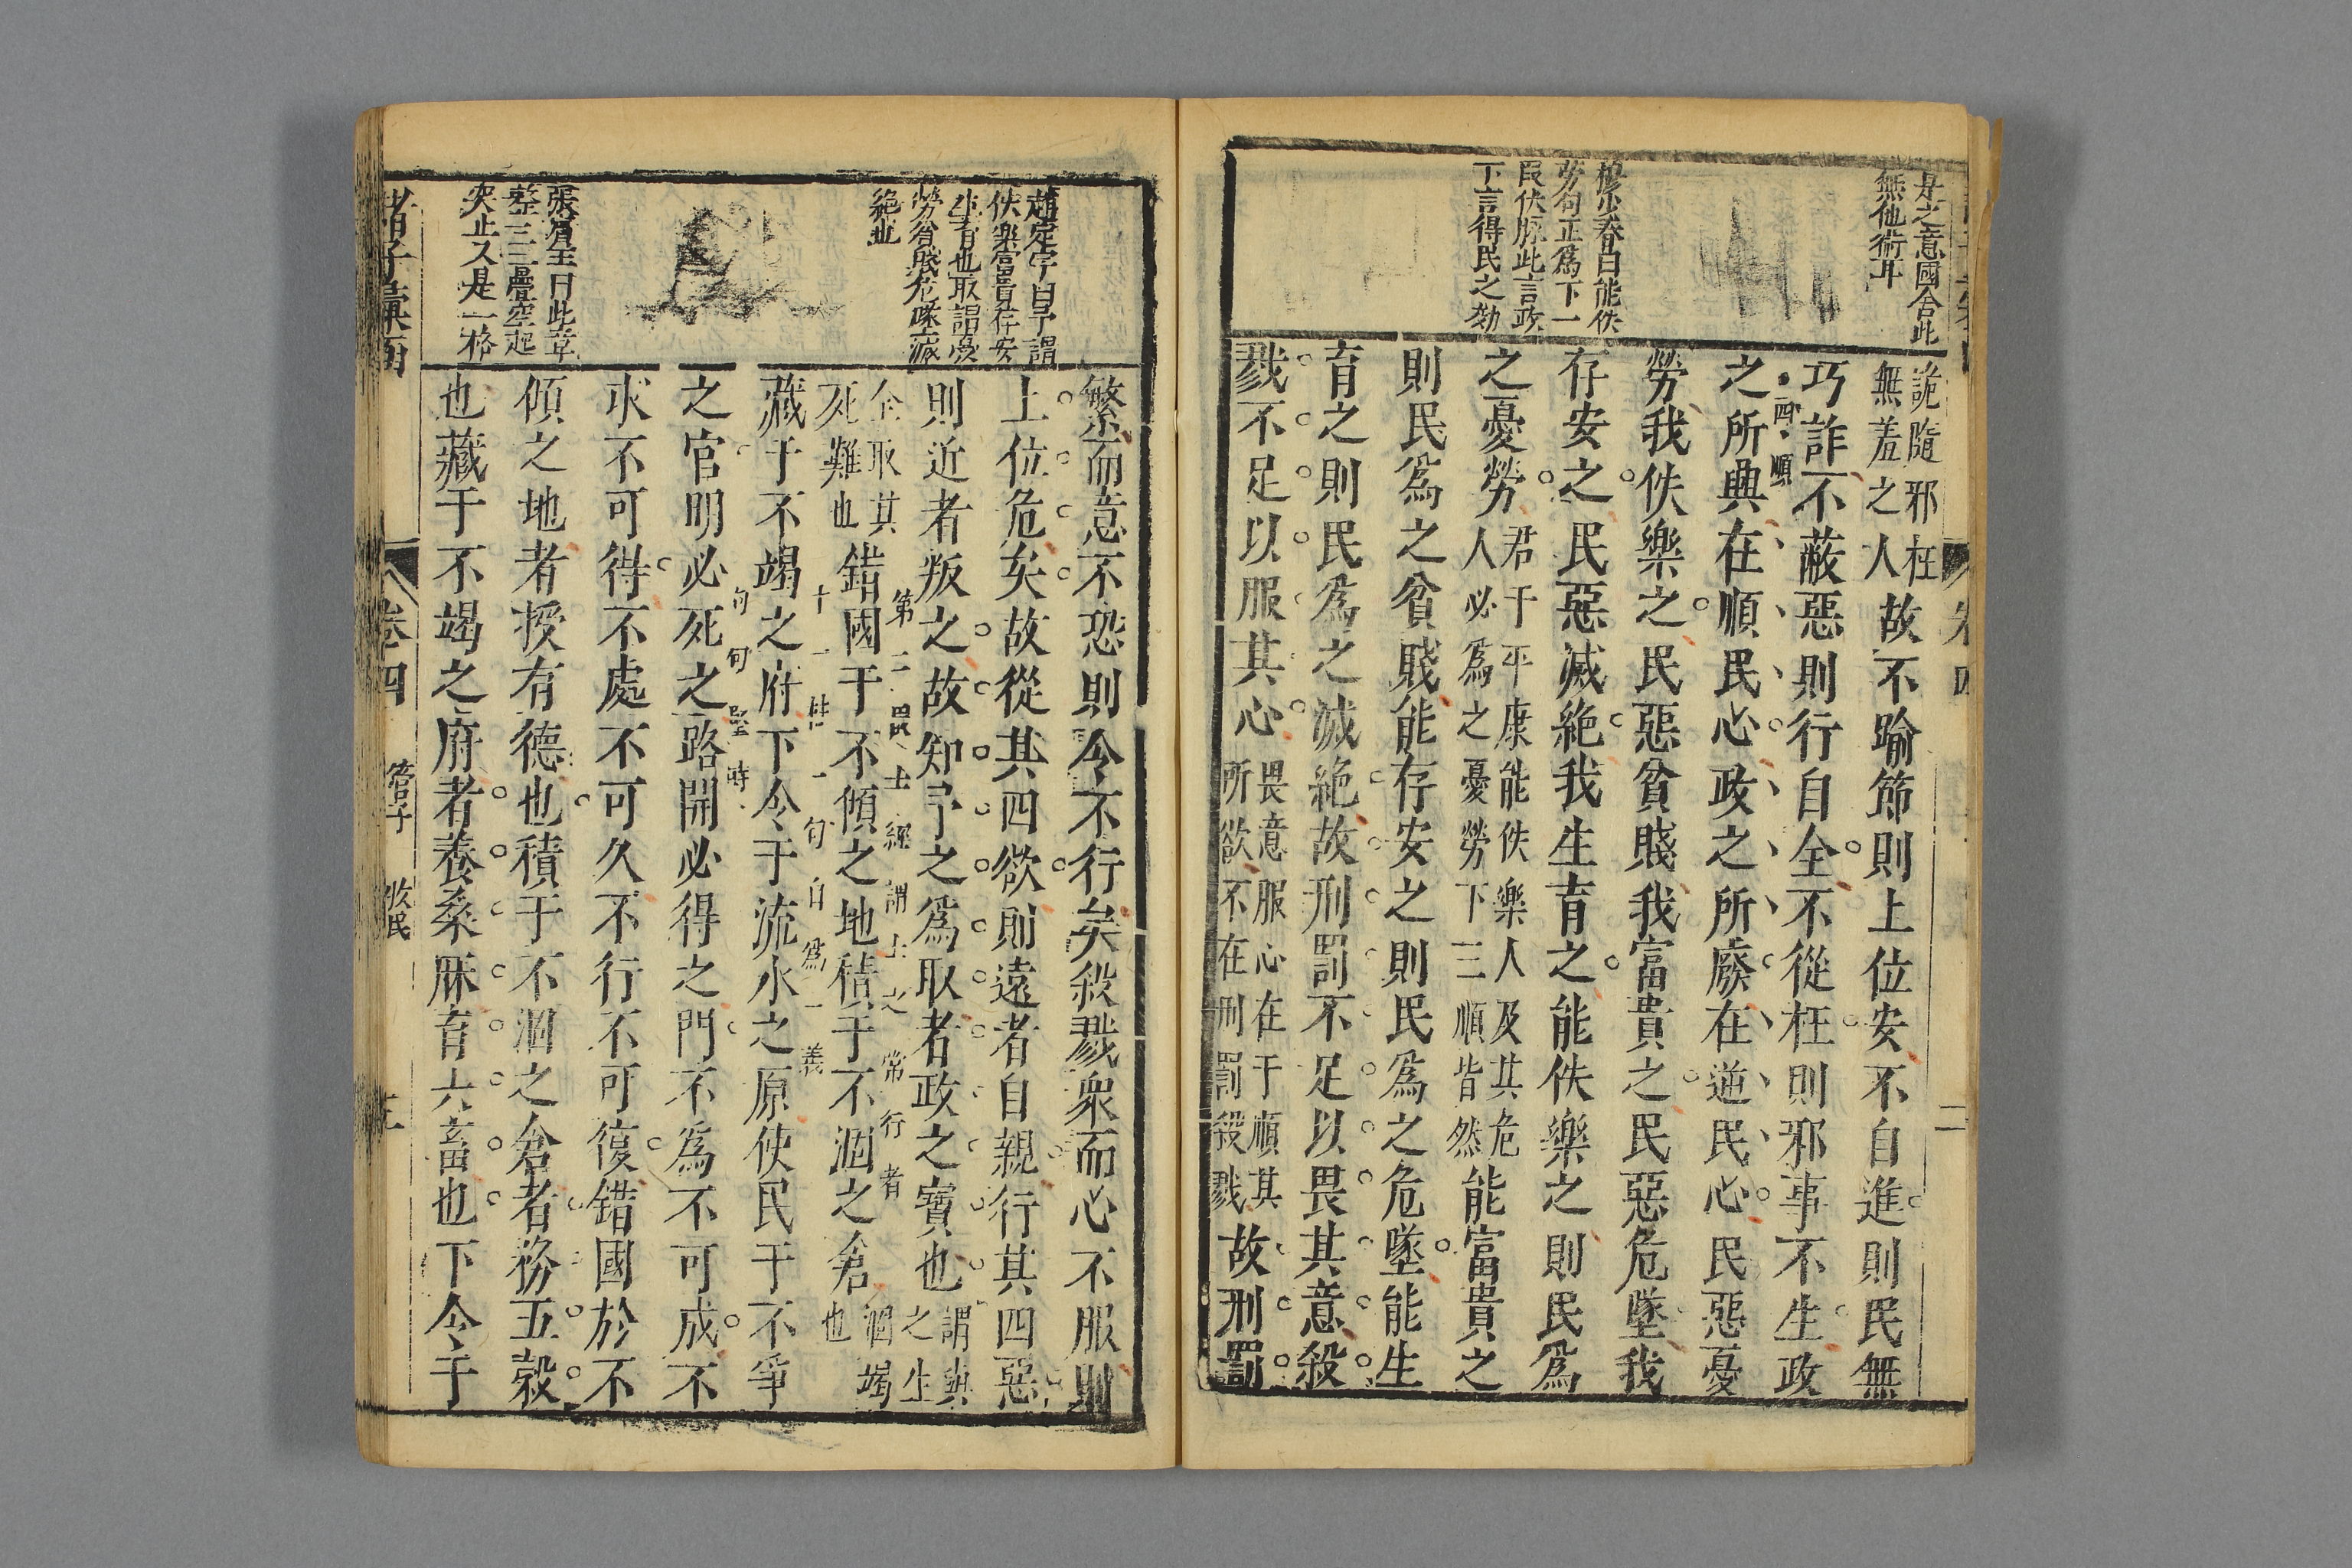 是之意國合此
無他術耳
楊少春曰能佚
勞句正爲下一
叚伏脉此言政
下言得民之効
詭隨邪枉
無羞之人故不踰節則上位安不自進則民無
巧詐不蔽惡則行自全不從枉則邪事不生政
四順
之所興在順民心政之所廢在逆民心民惡憂
勞我佚樂之民惡貧賤我富貴之民惡危墜我
存安之民惡滅絶我生育之能佚樂之則民爲
之憂勞
君于平康能佚樂人及其危
人必爲之憂勞下三順皆然
能富貴之
則民爲之貧賤能存安之則民爲之危墜能生
育之則民爲之滅絶故刑罰不足以畏其意殺
戮不足以服其心
畏意服心在于順其
所欲不在刑罰殺戮
故刑罰
卷四
二
趙定宇曰予謂
佚樂富貴存安
生育也取謂憂
勞貧賤危墜滅
絶也
張賓王曰此章
整三三疊空起
突止又是一格
繁而意不恐則令不行矣殺戮衆而心不服則
上位危矣故從其四欲則遠者自親行其四惡
則近者叛之故知予之爲取者政之寶也
謂與之生
全取其
死難也
第二叚士經謂士之常行者
錯國于不傾之地積于不涸之倉
涸竭
也
十一性一句自爲一義
藏于不竭之府下令于流水之原使民于不爭
之官明必死之路開必得之門不爲不可成不
句句堅峙
求不可得不處不可久不行不可復錯國於不
傾之地者授有德也積于不涸之倉者務五榖
也藏于不竭之府者養桑麻育六畜也下令于
諸子彙函
卷四
管子
牧民
三